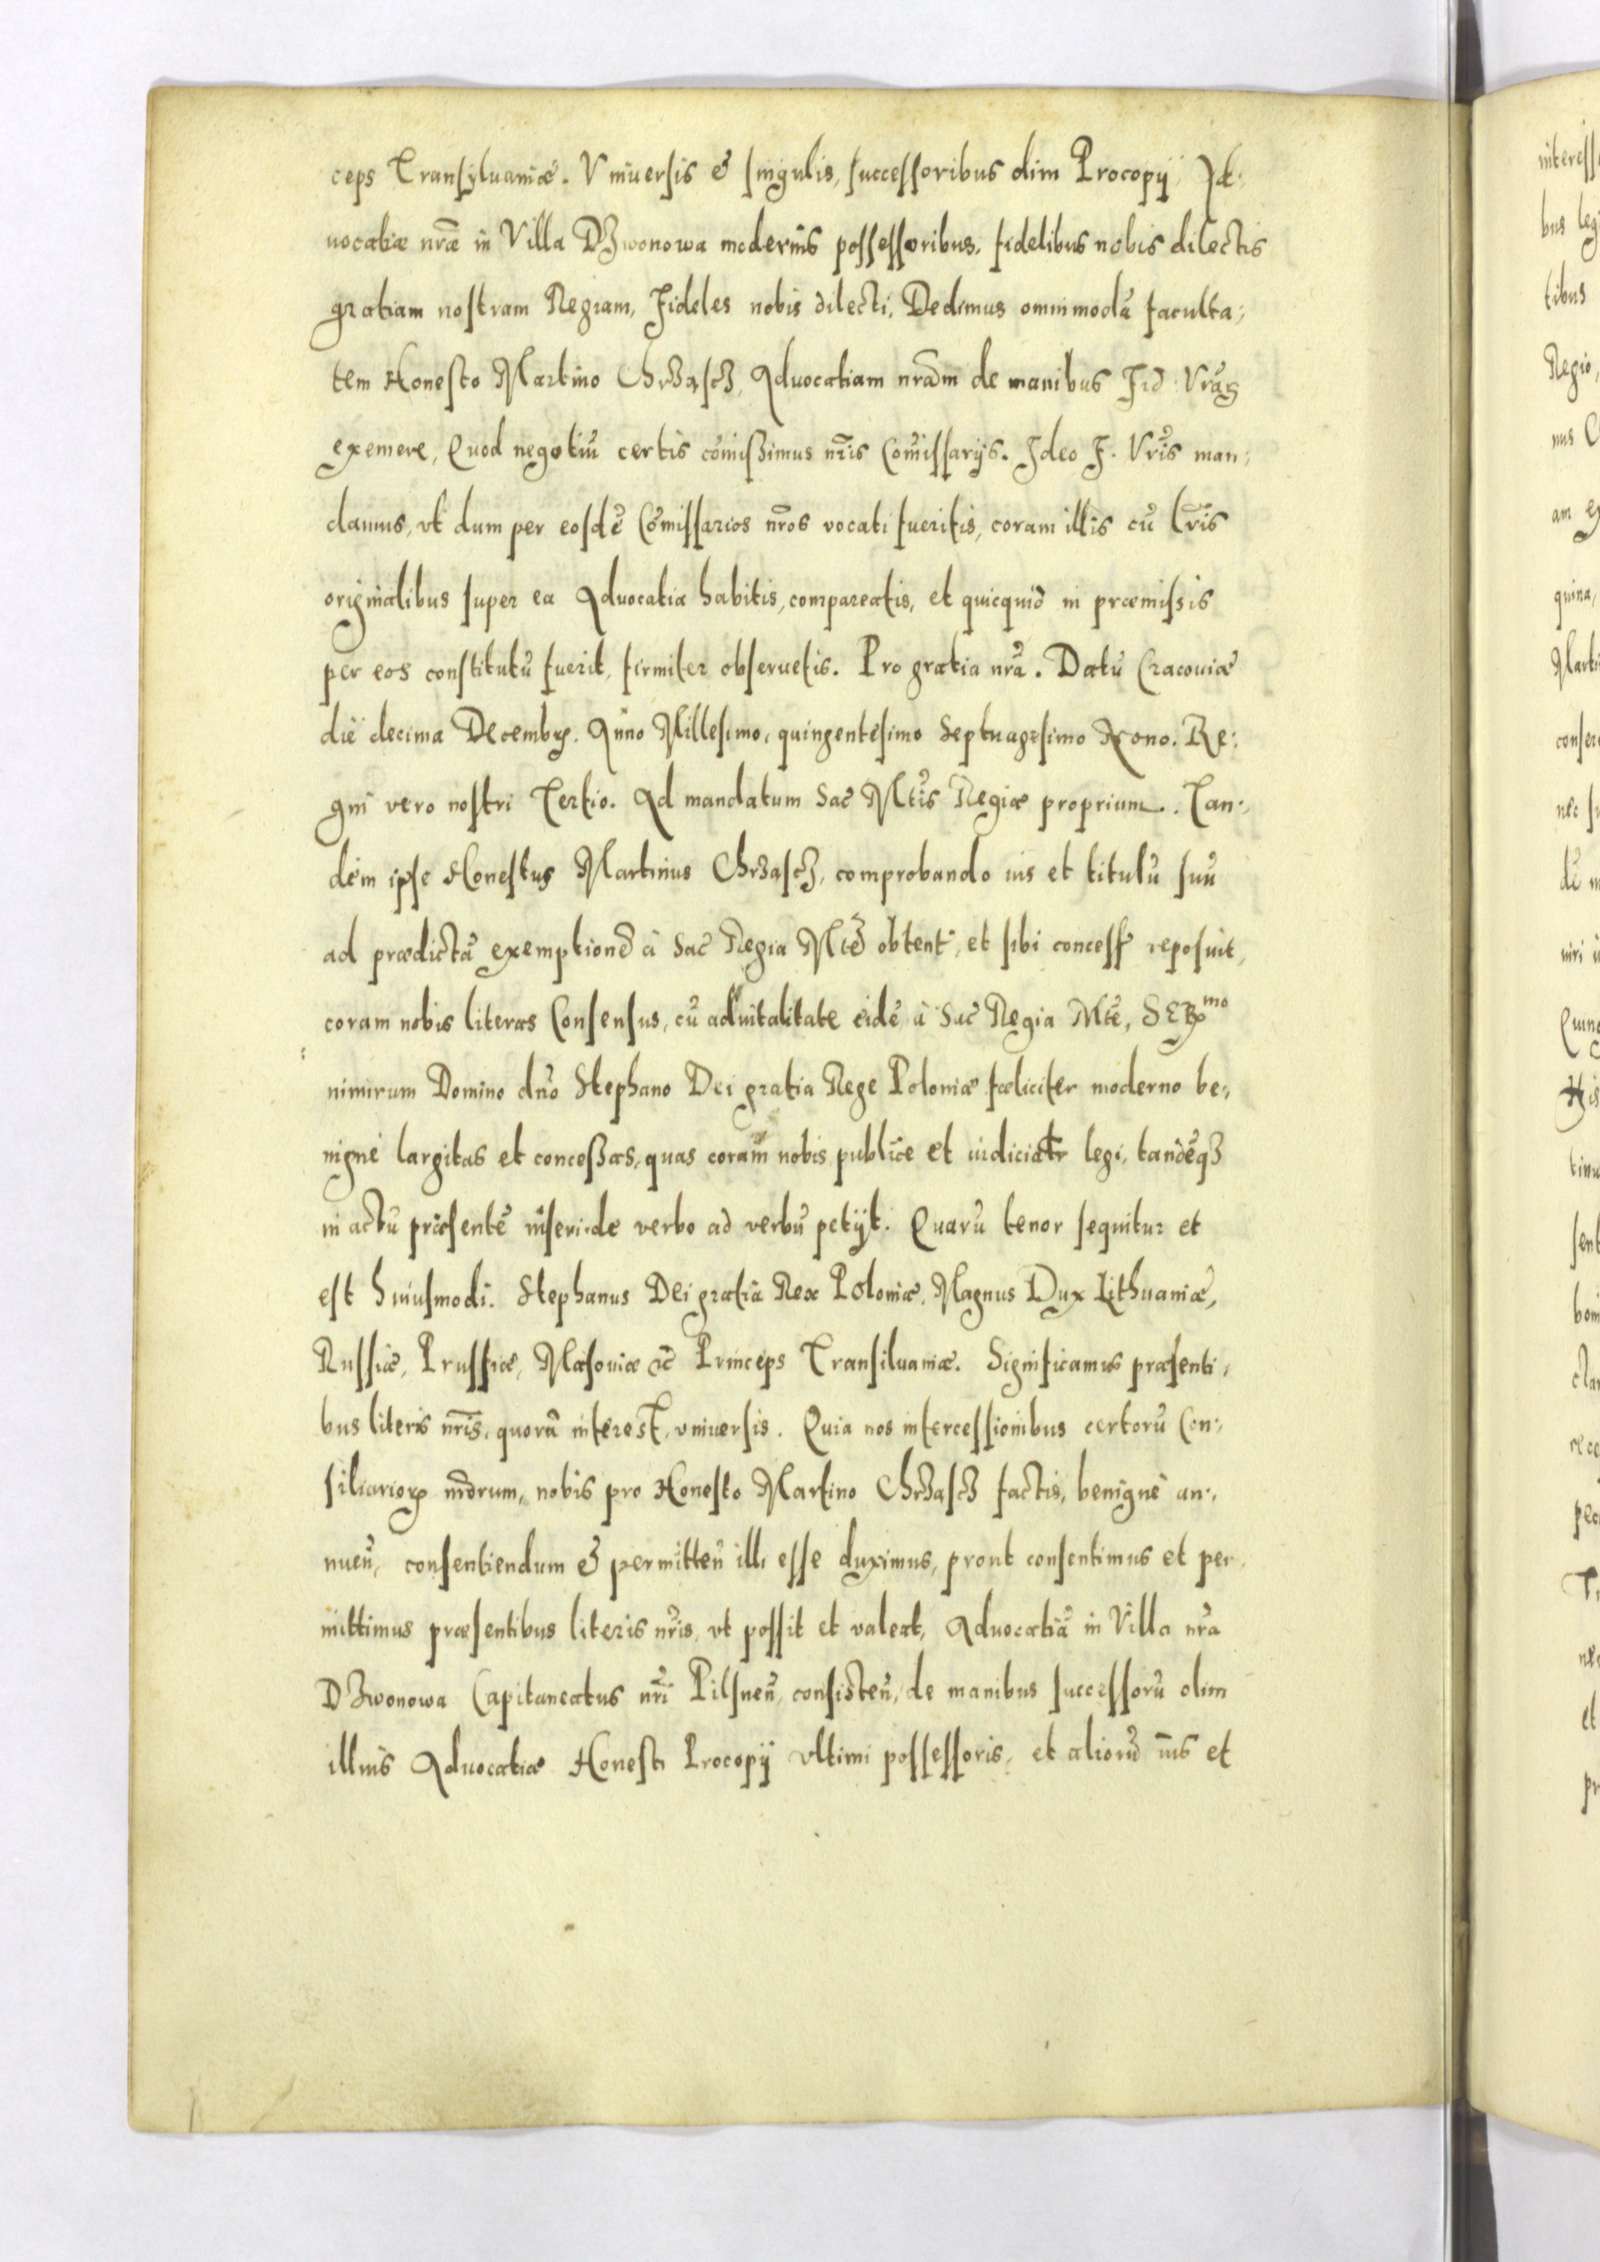 ceps Transyluaniæ. Vniuersis & singulis, successoribus olim Procopij, Ad:
uocatiæ nr̃æ in Villa Dzwonowa modernis possessoribus, fidelibus nobis dilectis
gratiam nostram Regiam, Fideles nobis dilecti, Dedimus omnimodã faculta:
tem Honesto Martino Chrząscz, Aduocatiam nr̃am de manibus Fid: Vrãꝝ
exemere, Quod negotiũ certis com̃issimus nr̃is Com̃issarijs. Ideo F. Vrĩs man:
damus, vt dum per eosdẽ Com̃issarios nr̃os vocati fueritis, coram illis cũ Lr̃is
originalibus super ea Aduocatia habitis, compareatis, et quicquid in præmissis
per eos constitutũ fuerit, firmiter obseruetis. Pro gratia nrã. Datũ Cracouiæ
die decima Decembrꝭ. Anño Millesimo, quingentesimo Septuagesimo Nono. Re:
gni vero nostri Tertio. Ad mandatum Sac̃ Mtĩs Regiæ proprium. Tan:
dem ipse Honestus Martinus Chrząscz, comprobando ius et titulũ suũ
ad prædictã exemptionẽ à Sac̃ Regia Mtẽ obtent, et sibi concess reposuit,
coram nobis literas Consensus, cũ aduitalitate eidẽ à Sac̃ Regia Mtẽ, SERmo
nimirum Domino dño Stephano Dei gratia Rege Poloniæ fœliciter moderno be:
nigne largitas et conceßas, quas coram nobis publice et iudicialr legi, tandẽqꝫ
in actũ præsentẽ inseri de verbo ad verbũ petijt. Quarũ tenor sequitur et
est huiusmodi. Stephanus Dei gratia Rex Poloniæ, Magnus Dux Lithuaniæ,
Russiæ, Prussiæ, Masouiæ &c̃ Princeps Transiluaniæ. Significamus præsenti:
bus literis nr̃is, quorũ interest, vniuersis. Quia nos intercessionibus certorũ Con:
siliarioꝝ nr̃orum, nobis pro Honesto Martino Chrząscz factis, benigne an:
nueñ, consentiendum & permitteñ illi esse duximus, prout consentimus et per
mittimus præsentibus literis nr̃is, vt possit et valeat, Aduocatiã in Villa nrã
Dzwonowa Capitaneatus nr̃i Pilsneñ, consisteñ, de manibus successorũ olim
illius Aduocatiæ Honesti Procopij vltimi possessoris, et aliorũ ius et